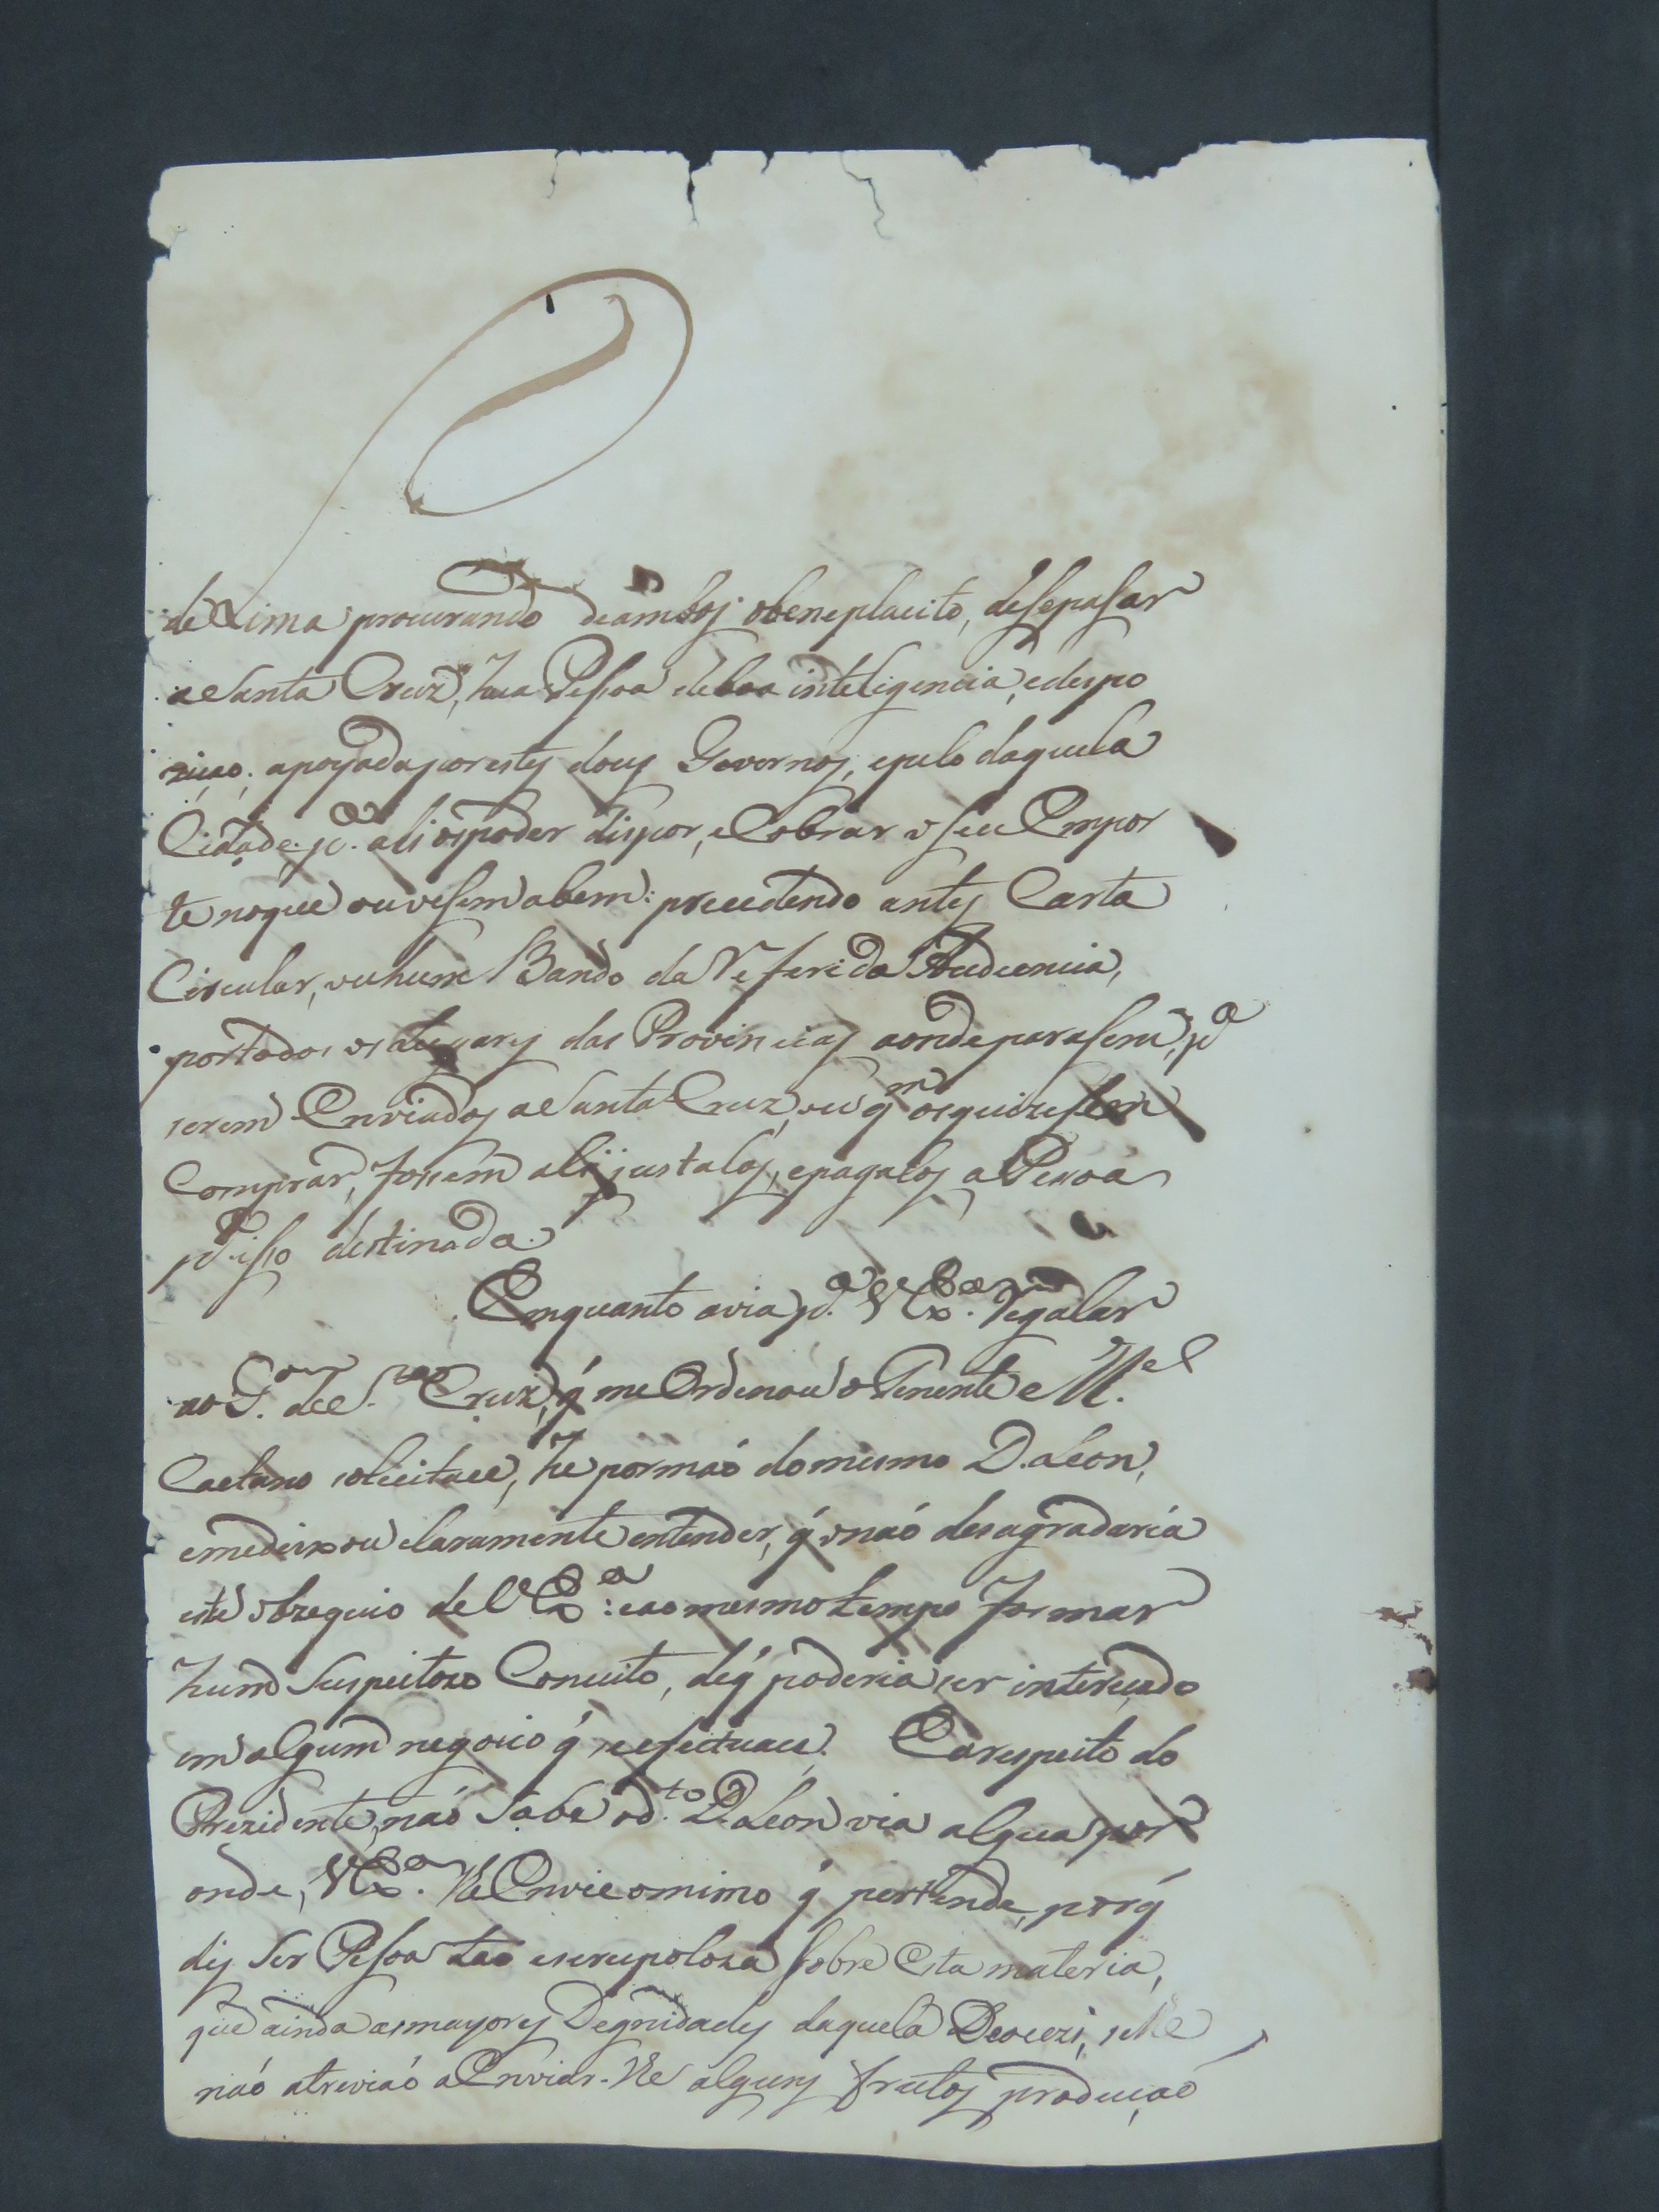 de Lima procurando deambos obeneplacito, desepasar
a Santa Cruz, hua Pessoa deboa inteligencia, edespo
zicao, apoyada por estes dous Governos, epelo daquela
Cidade, pa. ali ospoder dispor, e Cobrar o seu Empor
te noque ouvesem abem: precedendo antes Carta
Circular, ou hum Bando da Referida Audiencia,
portodos os Lugares das Provincias aonde parasem, pa
serem Enviados a Santa Cruz, ou qm osquizesem
Comprar, fossem ali justalos, epagalos a Pessoa
pa. isso destinada.
Emquanto avia pa. V Exa. Regalar
ao Gor. de Sta Cruz, q̃ me Ordenou o Tenente Mel.
Caetano solicitace, he pormaó domesmo D. Leon,
emedeixou claramente entender, q̃ onaó desagradaria
este obzequio de V Exa: eaomesmo tempo formar
hum Suspeitozo Conceito, deq̃ poderia ser interecado
em algum negocio q̃ seefectuace. Earespeito do
Prezidente, naó Sabe odto D. Leon via algua por
onde, V Exa. lhe Envie omimo q̃ pertende, porq̃
dis Ser Pesoa tao escrupoloza Sobre Esta materia,
que ainda asmayores Degnidades daquela Deocezi, selhe
naó atreviaó aEnviar-lhe alguns frutos produçaó